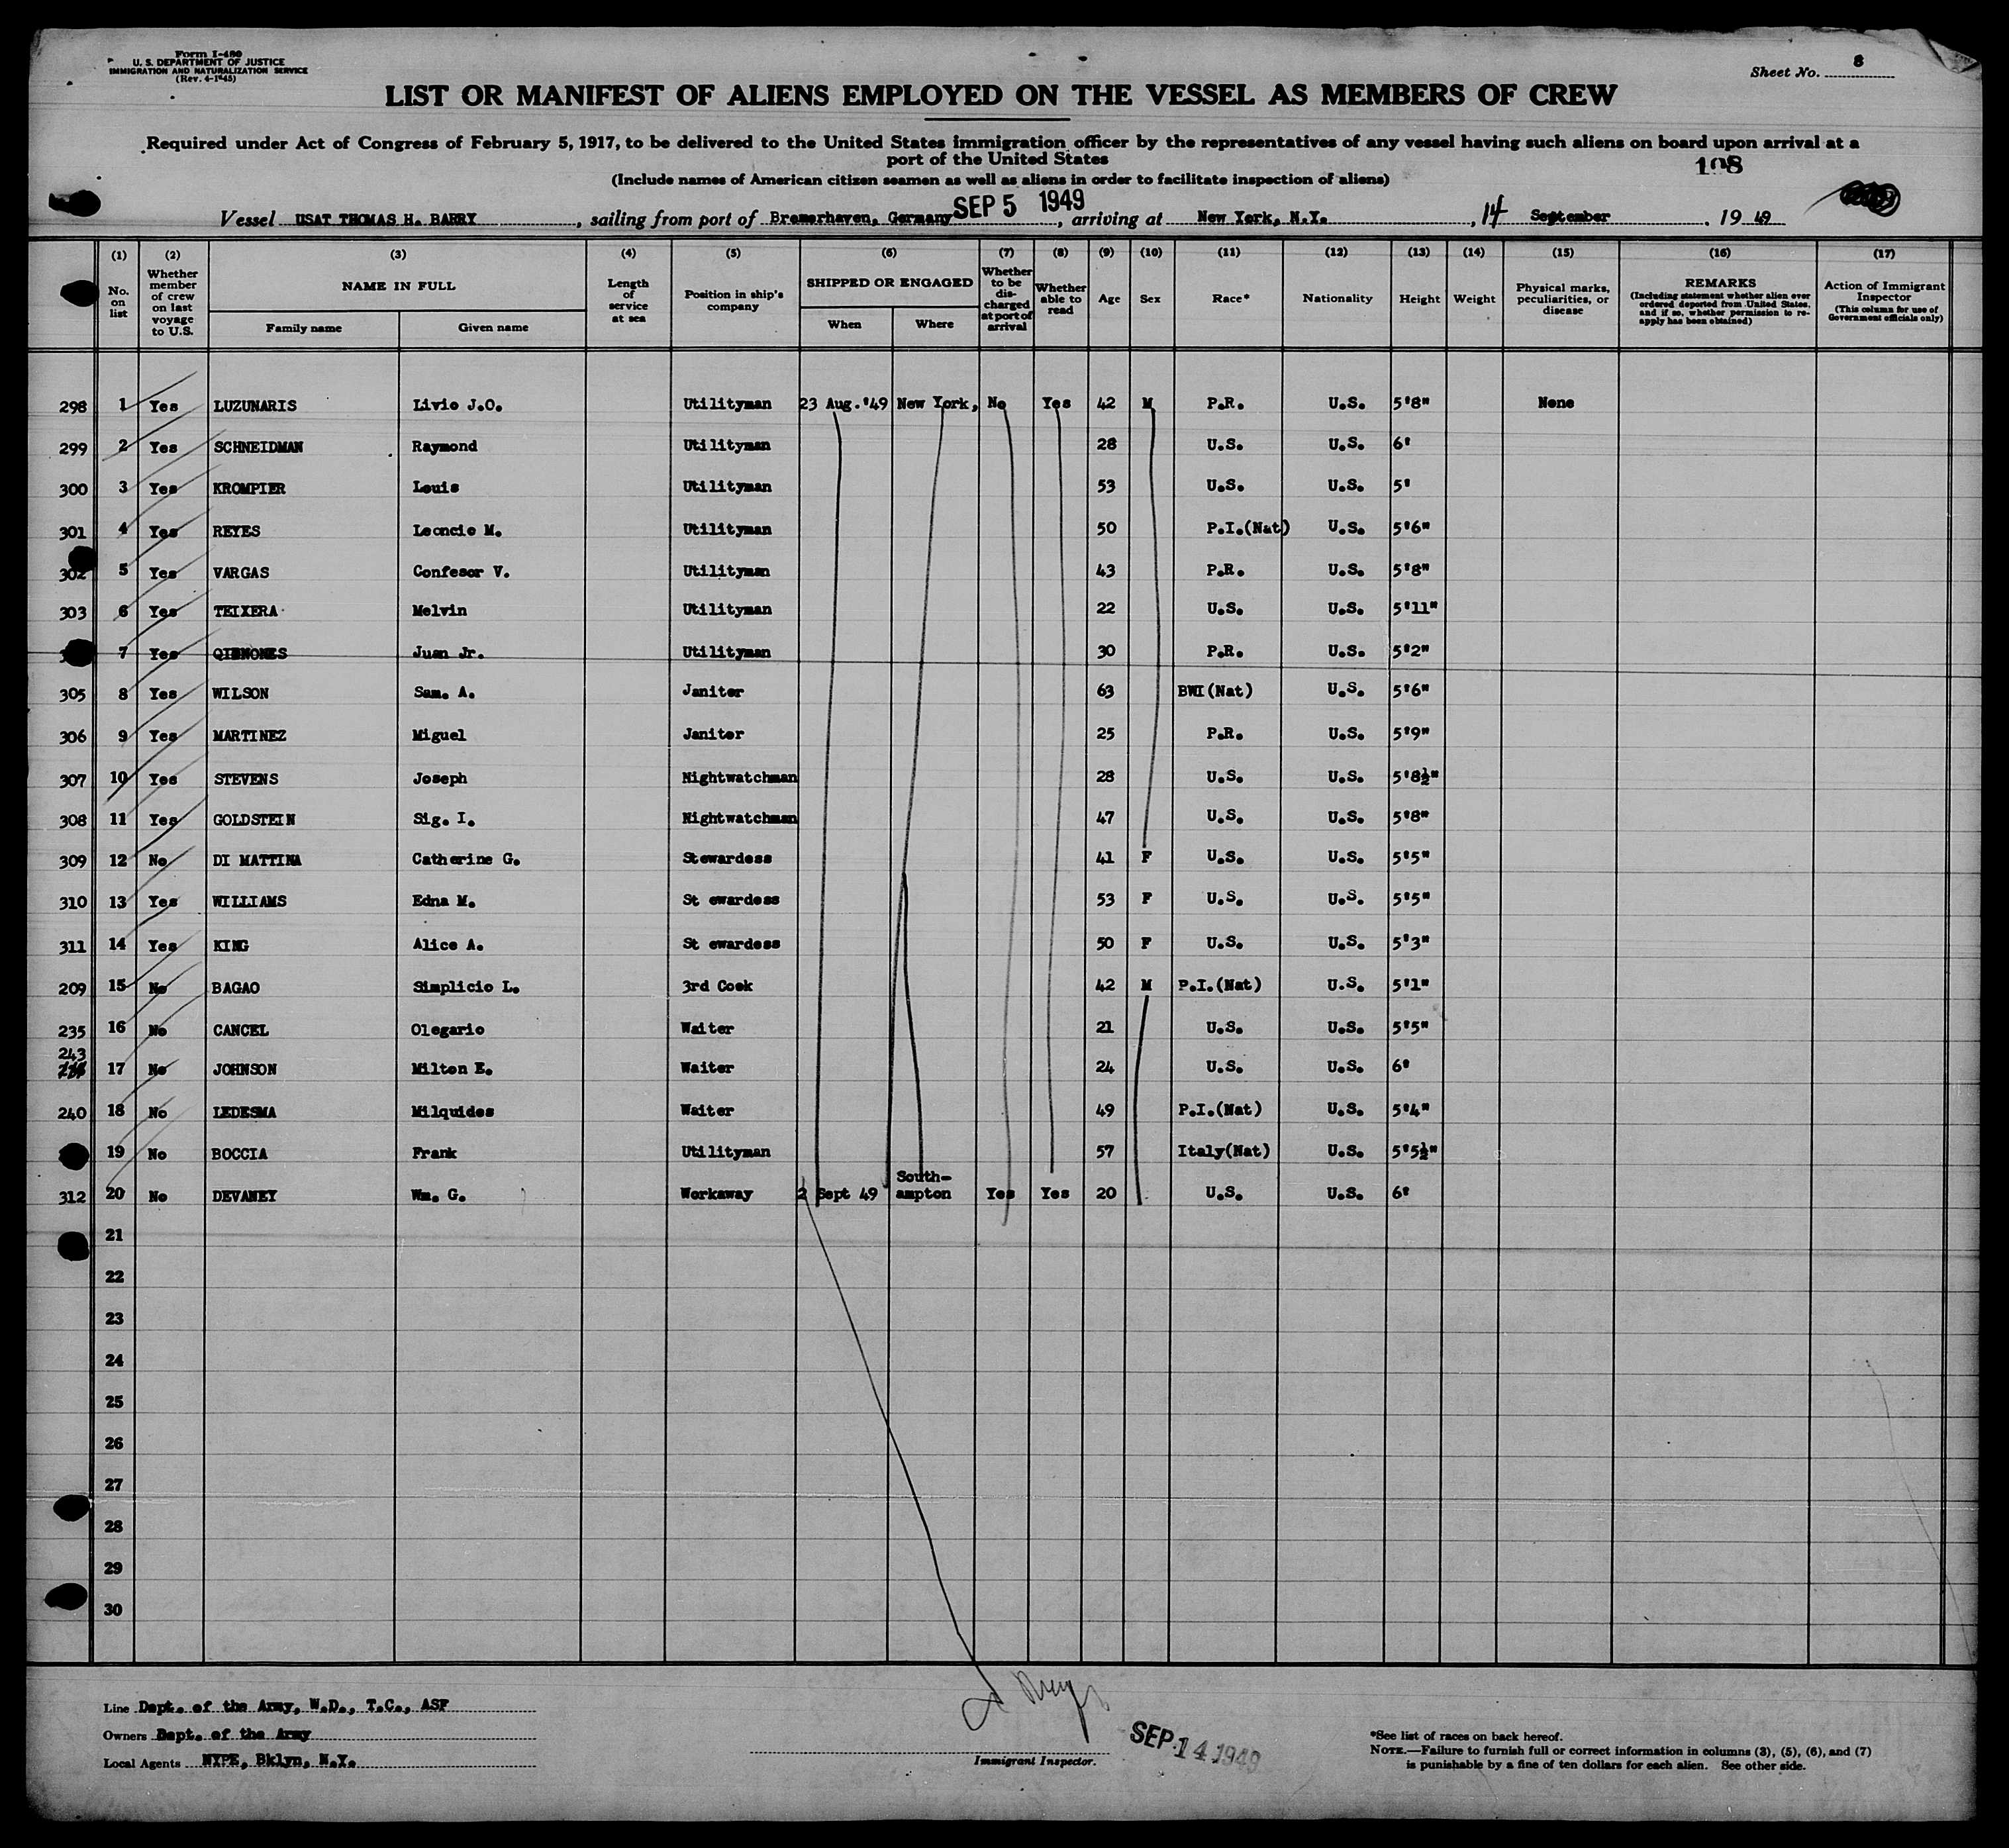 Form I-480
U. S. DEPARTMENT OF JUSTICE
IMMIGRATION AND NATURALIZATION SERVICE
(Rev. 4-1-45)
Sheet No. 8
LIST OR MANIFEST OF ALIENS EMPLOYED ON THE VESSEL AS MEMBERS OF CREW
Required under Act of Congress of February 5, 1917, to be delivered to the United States immigration officer by the representatives of any vessel having such aliens on board upon arrival at a
port of the United States
108
(Include names of American citizen seamen as well as aliens in order to facilitate inspection of aliens)
Vessel USAT THOMAS H. BARRY, sailing from port of Bremerhaven, Germany SEP 5 1949, arriving at New York, N.Y., 14 September, 19 49
(1) (2) (3) (4) (5) (6) (7) (8) (9) (10) (11) (12) (13) (14) (15) (16) (17)
No. on list
Whether member of crew on last voyage to U.S.
NAME IN FULL
Family name Given name
Length of service at sea
Position in ship's company
SHIPPED OR ENGAGED
When Where
Whether to be discharged at port of arrival
Whether able to read
Age
Sex
Race*
Nationality
Height
Weight
Physical marks, peculiarities, or disease
REMARKS
(Including statement whether alien ever ordered deported from United States, and if so, whether permission to reapply has been obtained)
Action of Immigrant Inspector
(This column for use of Government officials only)
298 1 Yes LUZUNARIS Livio J.O. Utilityman 23 Aug.'49 New York, No Yes 42 M P.R. U.S. 5'8" None
299 2 Yes SCHNEIDMAN Raymond Utilityman 28 U.S. U.S. 6'
300 3 Yes KROMPIER Louis Utilityman 53 U.S. U.S. 5'
301 4 Yes REYES Leoncio M. Utilityman 50 P.I.(Nat) U.S. 5'6"
302 5 Yes VARGAS Confesor V. Utilityman 43 P.R. U.S. 5'8"
303 6 Yes TEIXERA Melvin Utilityman 22 U.S. U.S. 5'11"
7 Yes Juan Jr. Utilityman 30 P.R. U.S. 5'2"
305 8 Yes WILSON Sam. A. Janitor 63 BWI(Nat) U.S. 5'6"
306 9 Yes MARTINEZ Miguel Janitor 25 P.R. U.S. 5'9"
307 10 Yes STEVENS Joseph Nightwatchman 28 U.S. U.S. 5'8½"
308 11 Yes GOLDSTEIN Sig. I. Nightwatchman 47 U.S. U.S. 5'8"
309 12 No DI MATTINA Catherine G. Stewardess 41 F U.S. U.S. 5'5"
310 13 Yes WILLIAMS Edna M. St ewardess 53 F U.S. U.S. 5'5"
311 14 Yes KING Alice A. St ewardess 50 F U.S. U.S. 5'3"
209 15 No BAGAO Simplicio L. 3rd Cook 42 M P.I.(Nat) U.S. 5'1"
235 16 No CANCEL Olegario Waiter 21 U.S. U.S. 5'5"
243 17 No JOHNSON Milton E. Waiter 24 U.S. U.S. 6'
240 18 No LEDESMA Milquides Waiter 49 P.I.(Nat) U.S. 5'4"
19 No BOCCIA Frank Utilityman 57 Italy(Nat) U.S. 5'5½"
312 20 No DEVANEY Wm. G. Workaway 2 Sept 49 South-ampton Yes Yes 20 U.S. U.S. 6'
21
22
23
24
25
26
27
28
29
30
Line Dept. of the Army, W.D., T.C., ASF
Owners Dept. of the Army
Local Agents NYPE, Bklyn, N.Y.
Immigrant Inspector.
SEP 14 1949
*See list of races on back hereof.
NOTE.—Failure to furnish full or correct information in columns (3), (5), (6), and (7)
is punishable by a fine of ten dollars for each alien. See other side.